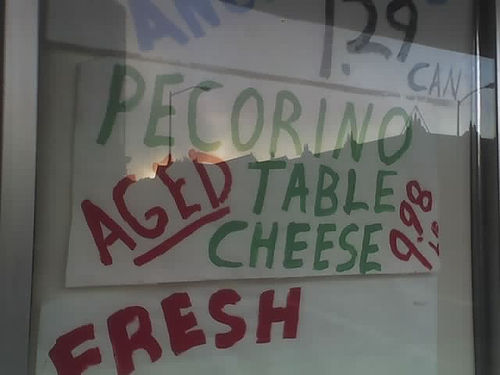 1.29
CAN
PECORINO
AGED TABLE
CHEESE 9.98 LB
FRESH